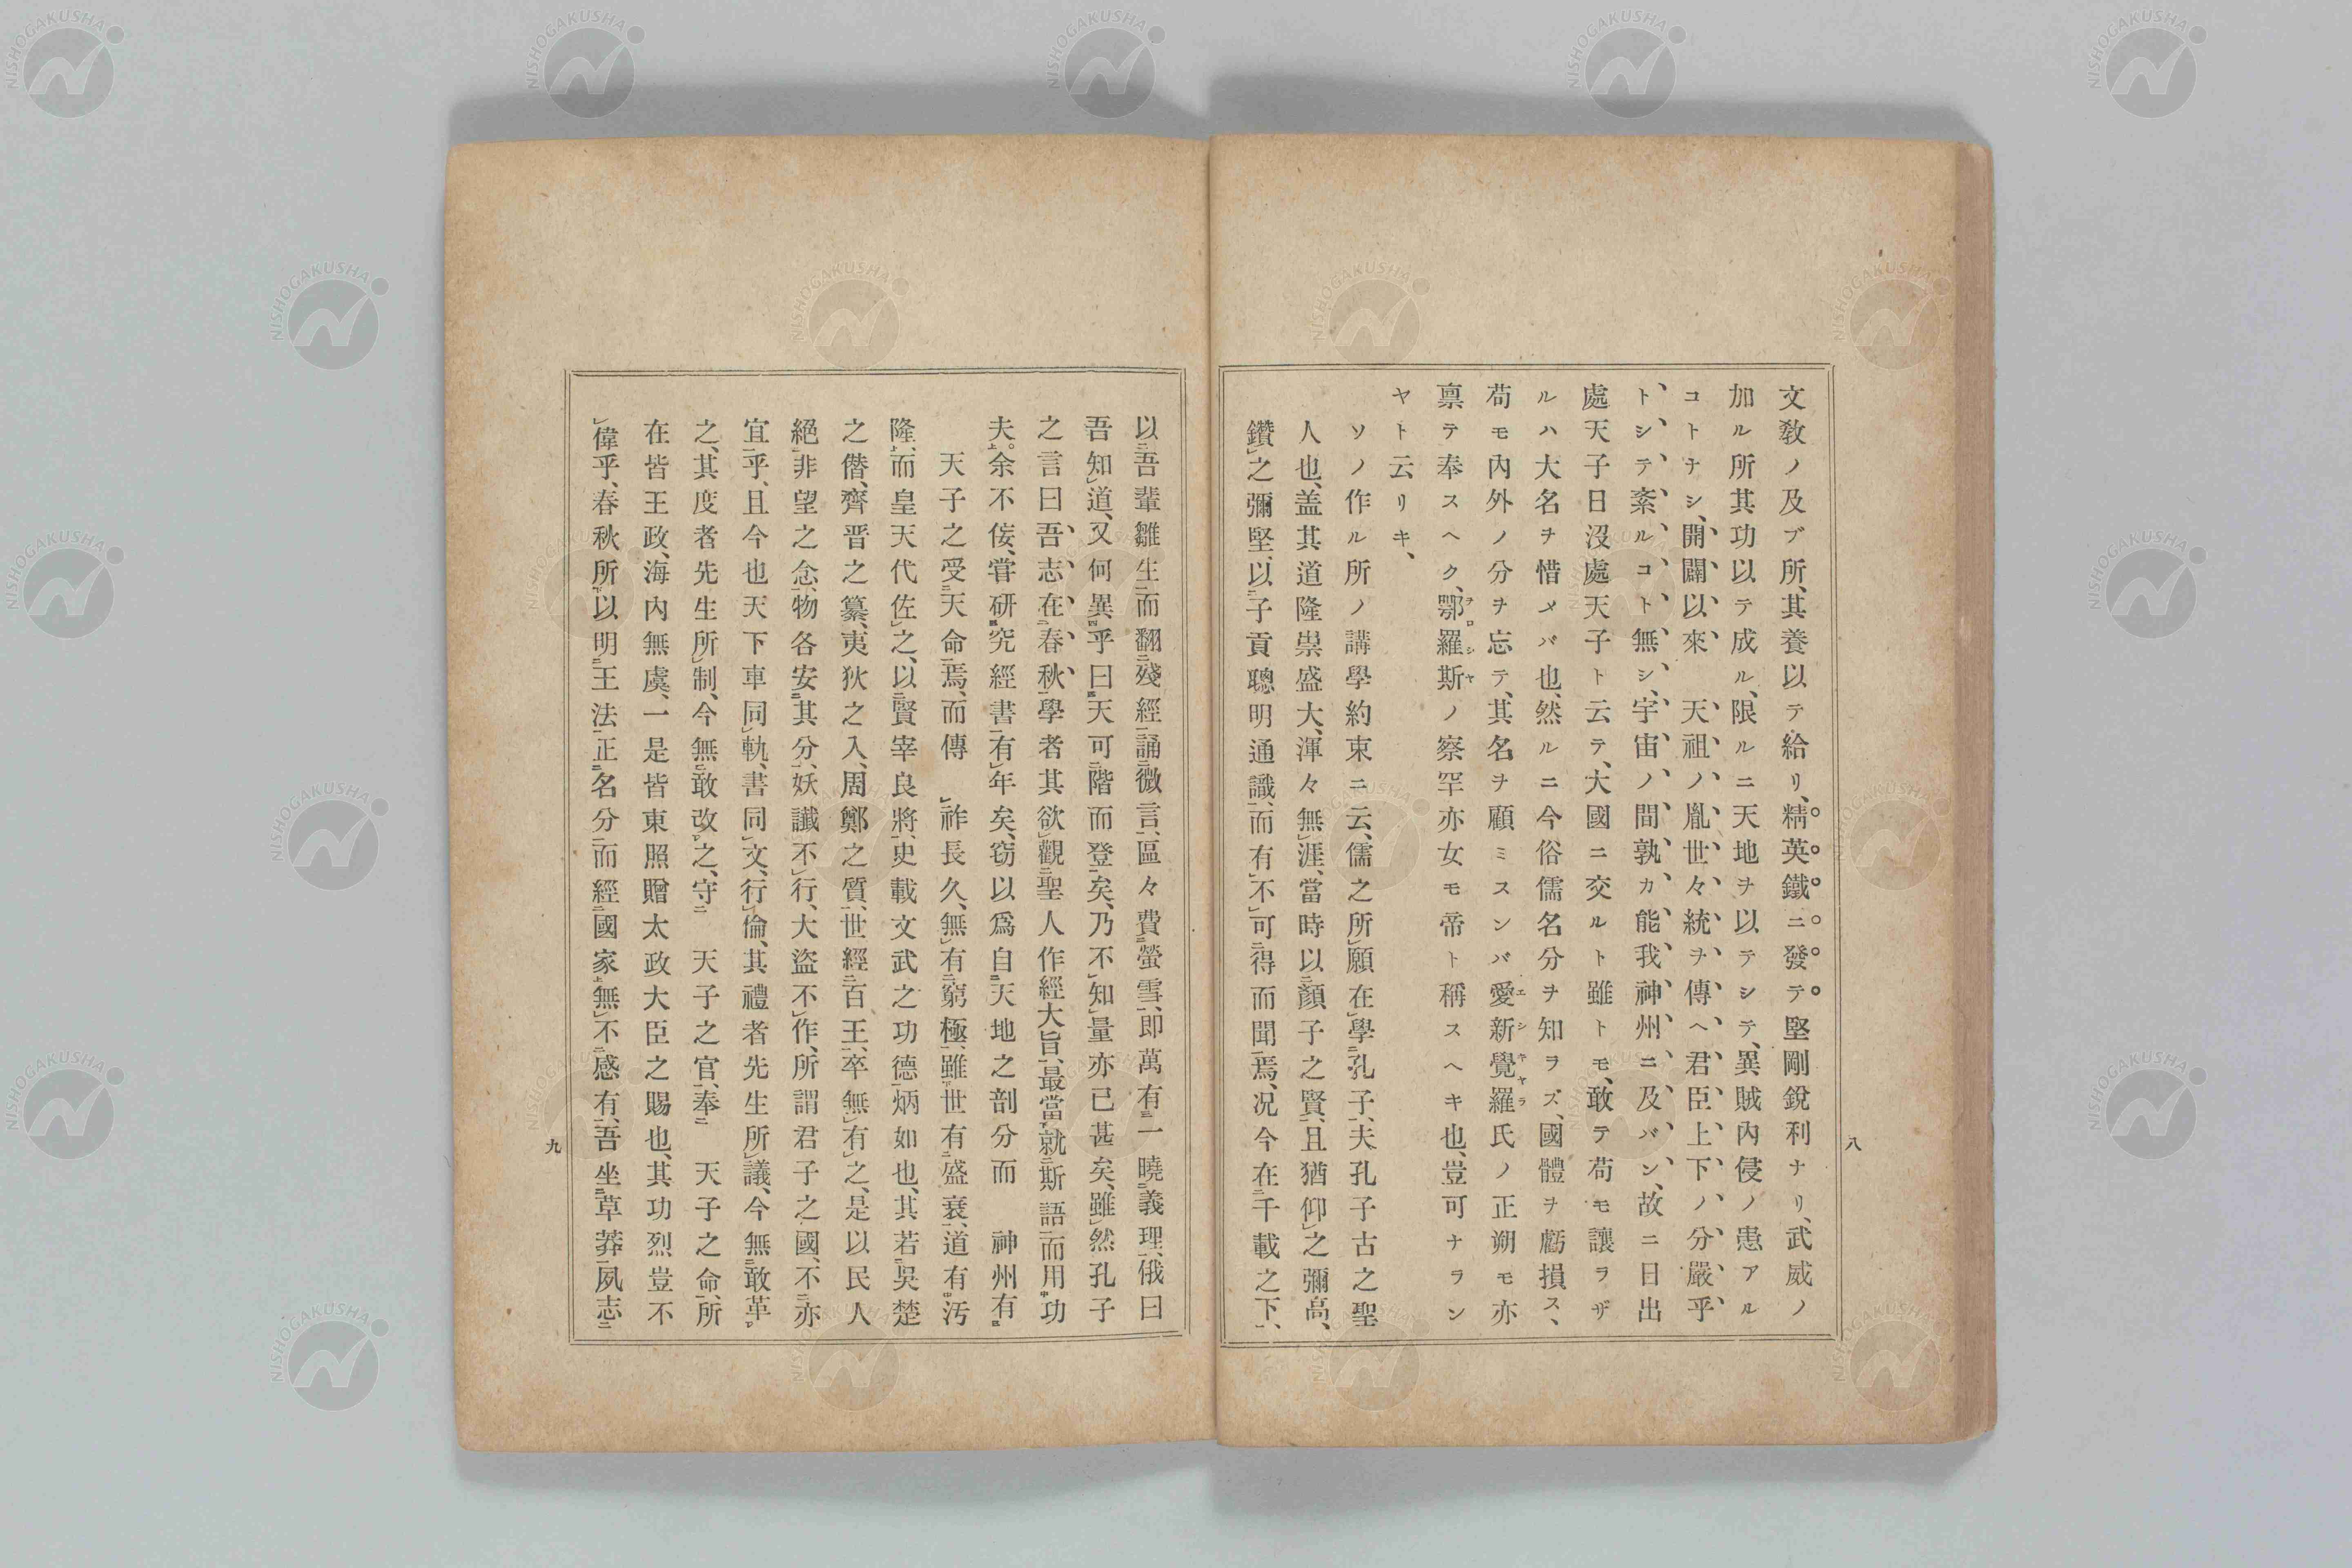 文敎ノ及ブ所、其養以テ給リ、精英鐵ニ發テ堅剛銳利ナリ、武威ノ
加ル所其功以テ成ル、限ルニ天地ヲ以テシテ、異賊內侵ノ患アル
コトナシ、開闢以來　天祖ノ胤世々統ヲ傳ヘ君臣上下ノ分嚴乎
トシテ紊ルコト無シ、宇宙ノ間孰カ能我神州ニ及バン、故ニ日出
處天子日沒處天子ト云テ、大國ニ交ルト雖トモ、敢テ苟モ讓ラザ
ルハ大名ヲ惜メバ也、然ルニ今俗儒名分ヲ知ラズ、國體ヲ虧損ス、
苟モ內外ノ分ヲ忘テ、其名ヲ顧ミスンバ愛新覺羅氏ノ正朔モ亦
エシキヤラ
禀テ奉スヘク、鄂羅斯ノ察罕亦女モ帝ト稱スヘキ也、豈可ナラン
ヲロシヤ
ヤト云リキ、
ソノ作ル所ノ講學約束ニ云、儒之所㆑願在㆑學㆓孔子㆒、夫孔子古之聖
人也、盖其道隆崇盛大、渾々無㆑涯、當時以㆓顏子之賢㆒、且猶仰㆑之彌高、
鑽㆑之彌堅、以㆓子貢聰明通識㆒、而有㆑不㆑可㆓得而聞㆒焉、况今在㆓千載之下㆒、
八
以㆓吾輩雛生㆒而翻㆓殘經㆒誦㆓微言㆒、區々費㆓螢雪㆒、卽萬有㆔一曉㆓義理㆒、俄曰
吾知㆑道、又何異㆘乎曰㆗天可㆓階而登㆒矣、乃不㆑知㆑量亦已甚矣、雖㆑然孔子
之言曰、吾志在㆓春秋㆒、學者其欲㆑觀㆓聖人作經大旨㆒、最當㆘就㆓斯語㆒而用㆗功
夫㆖。余不佞、嘗研㆓究經書㆒有㆑年矣、窃以爲自㆓天地之剖分㆒而　神州有㆓
天子之受㆓天命㆒焉、而傳㆑祚長久、無㆑有㆓窮極㆒、雖㆘世有㆓盛衰㆒、道有㆗汚
隆㆖、而皇天代佐㆑之、以㆓賢宰良將㆒、史載文武之功德炳如也、其若㆓吳楚
之僭、齊晋之簒、夷狄之入、周鄭之質㆒、世經㆓百王㆒、卒無㆑有㆑之、是以民人
絕㆓非望之念㆒、物各安㆓其分㆒、妖讖不㆑行、大盜不㆑作、所謂君子之國、不㆓亦
宜㆒乎、且今也天下車同㆑軌、書同㆑文、行同㆑倫、其禮者先生所㆑議、今無㆓敢革㆒
之、其度者先生所㆑制、今無㆓敢改㆒之、守㆓　天子之官㆒、奉㆓　天子之命㆒、所
在皆王政、海內無㆑虞、一是皆東照贈太政大臣之賜也、其功烈豈不
㆑偉乎、春秋所㆘以明㆓王法㆒正㆓名分㆒而經㆗國家㆖無㆑不㆓感有㆒、吾坐㆓草莽㆒夙志㆓
九